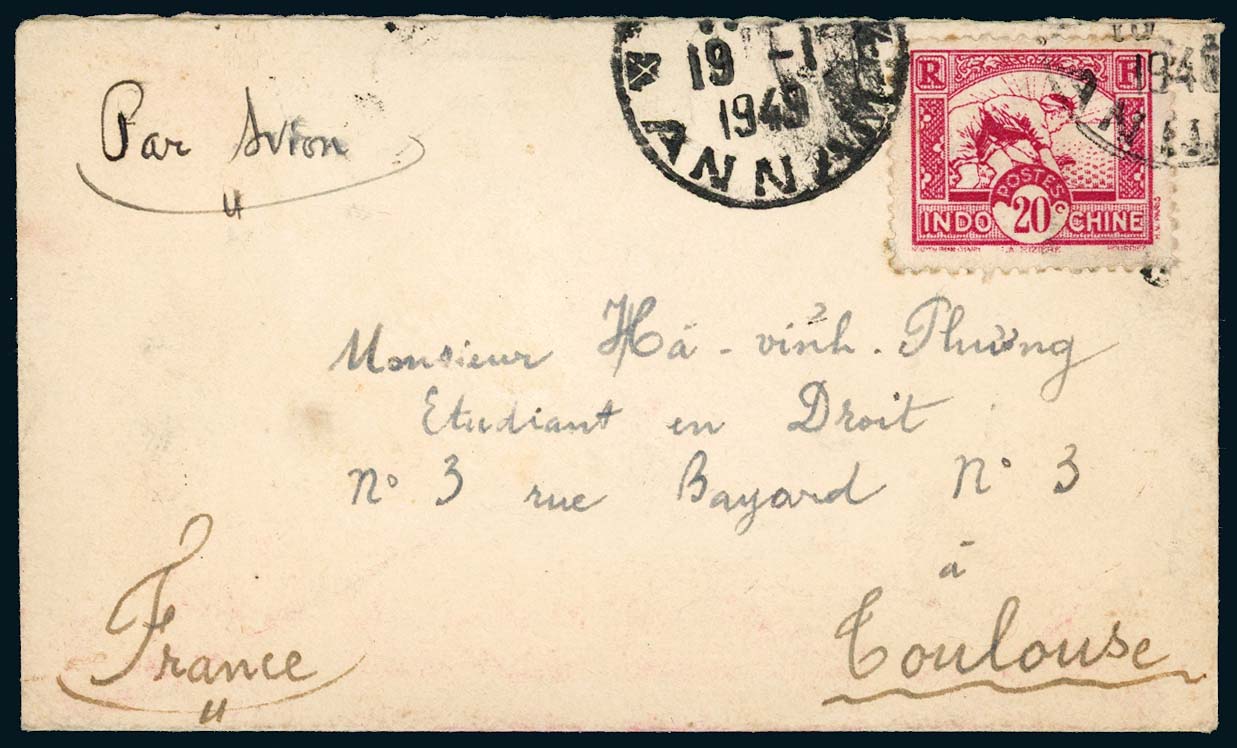 Par Avion
19 -1
1949
ANNAM
R F
POSTES
INDO 20c CHINE
LA RIZIERE
194
ANN
Monsieur Hà - vĩnh - Phương
Etudiant en Droit
N° 3 rue Bayard N° 3
à
Toulouse
France